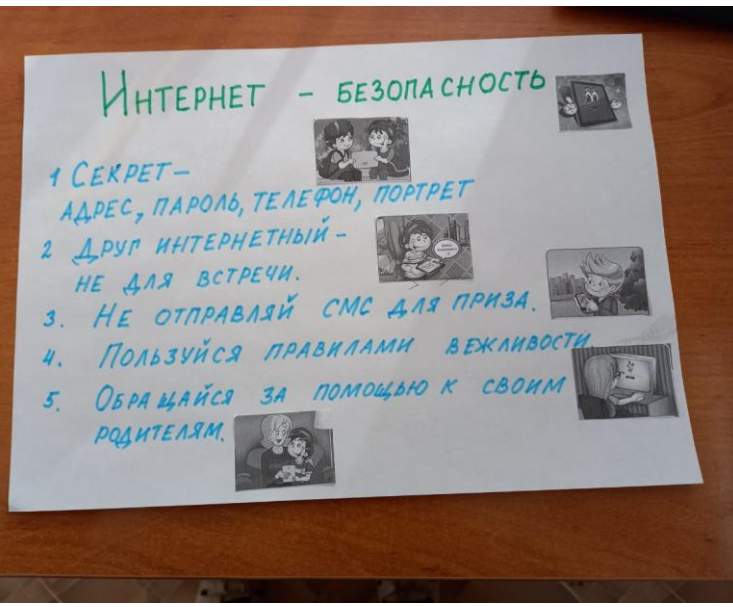 ИНТЕРНЕТ - БЕЗОПАСНОСТЬ
1 СЕКРЕТ-
АДРЕС, ПАРОЛЬ, ТЕЛЕФОН, ПОРТРЕТ
2 ДРУГ ИНТЕРНЕТНЫЙ-
НЕ ДЛЯ ВСТРЕЧИ.
3. НЕ ОТПРАВЛЯЙ СМС ДЛЯ ПРИЗА.
4. ПОЛЬЗУЙСЯ ПРАВИЛАМИ ВЕЖЛИВОСТИ.
5. ОБРАЩАЙСЯ ЗА ПОМОЩЬЮ К СВОИМ
РОДИТЕЛЯМ.